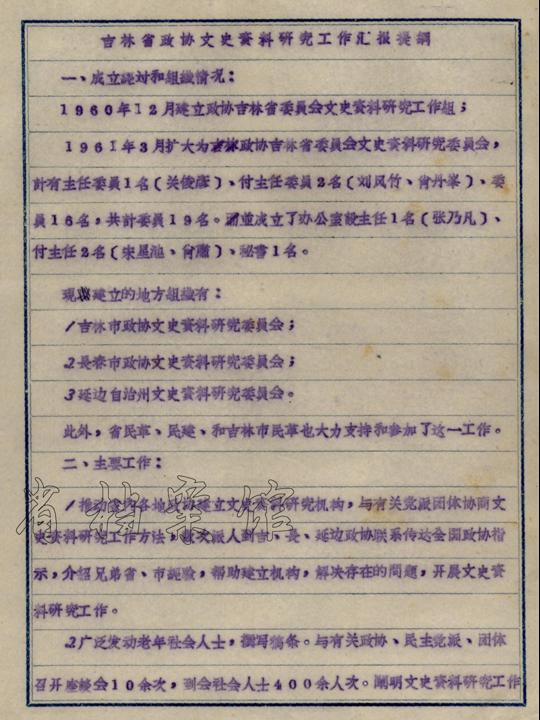 吉林省政协文史資料研究工作汇报提綱
一、成立經过和組織情况：
1960年12月建立政协吉林省委員会文史資料研究工作組；
1961年3月扩大为政协吉林省委員会文史資料研究委員会，
計有主任委員1名（关俊彥）、付主任委員2名（刘风竹、肖丹峯）、委
員16名，共計委員19名。并成立了办公室設主任1名（张乃凡）、
付主任2名（宋星池、肖）、秘書1名。
現建立的地方組織有：
1吉林市政协文史資料研究委員会；
2長春市政协文史資料研究委員会；
3延边自治州文史資料研究委員会。
此外，省民革、民建、和吉林市民革也大力支持和参加了这一工作。
二、主要工作：
1推动省內各地政协建立文史資料研究机构，与有关党派团体协商文
史資料研究工作方法，数次派人到吉、長、延边政协联系传达全国政协指
示，介紹兄弟省、市經驗，帮助建立机构，解决存在的問題，开展文史資
料研究工作。
2广泛发动老年社会人士，撰写稿条。与有关政协、民主党派、团体
召开座談会10余次，到会社会人士400余人次。闡明文史資料研究工作
省档案馆